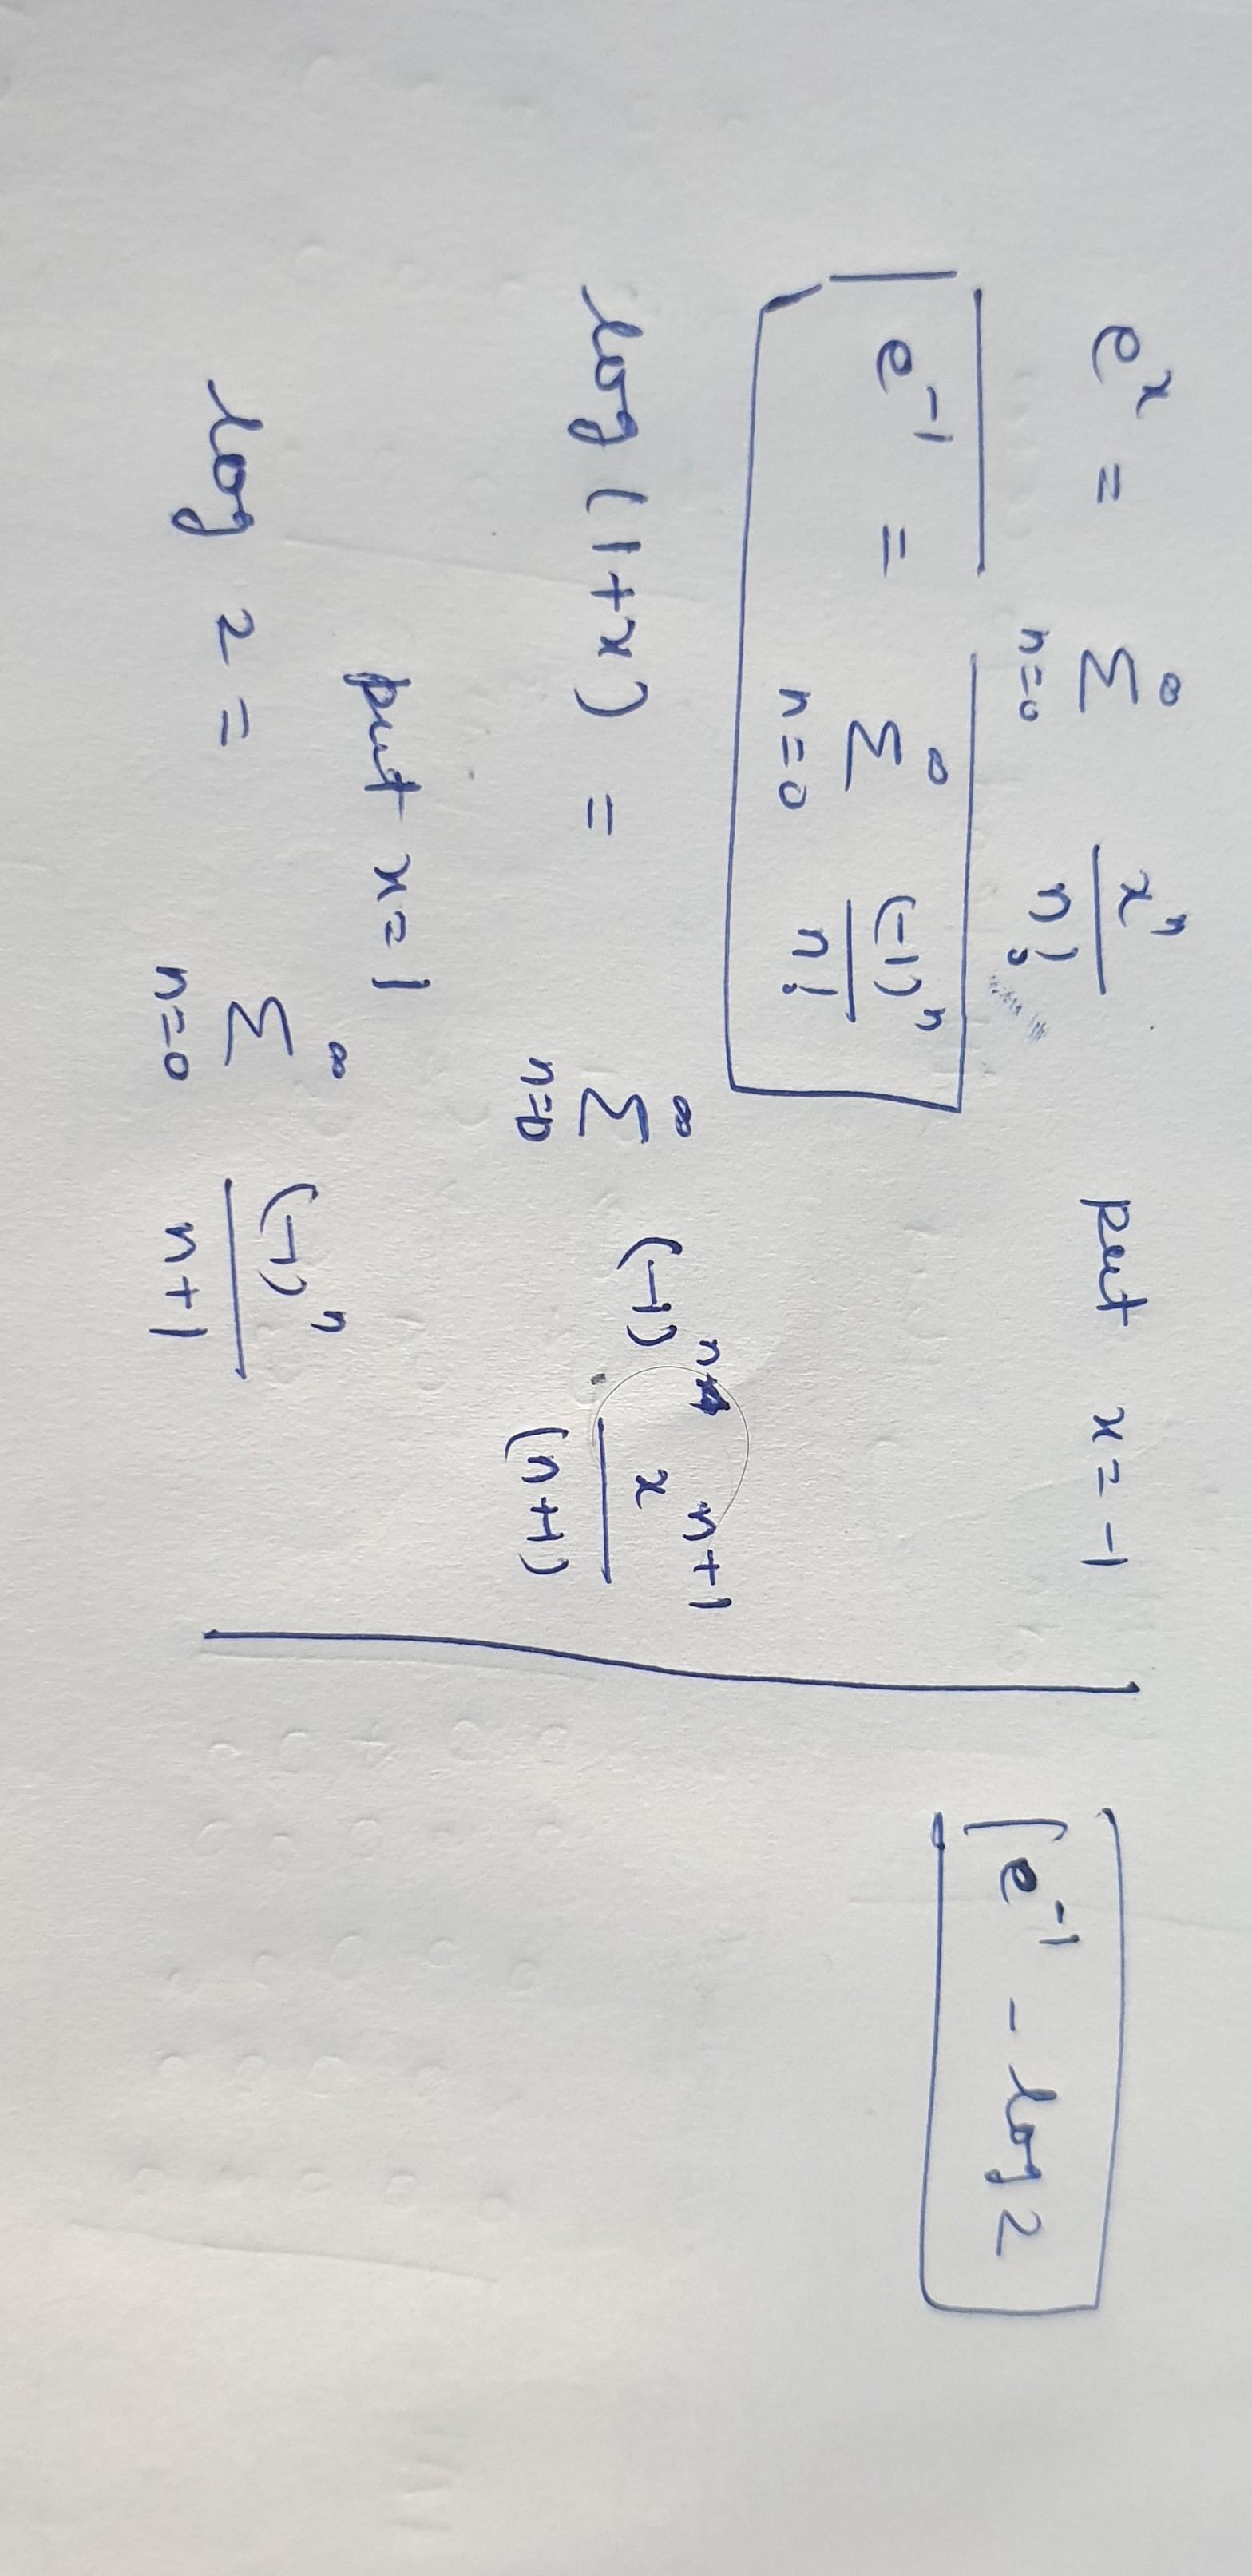 e^x = ∑_{n=0}^{∞} x^n / n! put x = -1
e^{-1} = ∑_{n=0}^{∞} (-1)^n / n!
log (1+x) = ∑_{n=0}^{∞} (-1)^n x^{n+1} / (n+1)
put x=1
log 2 = ∑_{n=0}^{∞} (-1)^n / n+1
e^{-1} - log 2